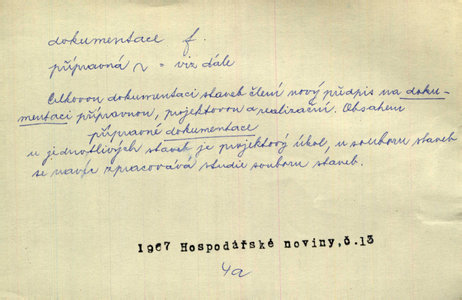 dokumentace f.
přípravná ~ = viz dále
Celkovou dokumentaci staveb člení nový předpis na doku-
mentaci přípravnou, projektovou a realizační. Obsahem
přípravné dokumentace
u jednotlivých staveb je projektový úkol, u souboru staveb
se navíc zpracovává studie souboru staveb.
1967 Hospodářské noviny, č.13
4a